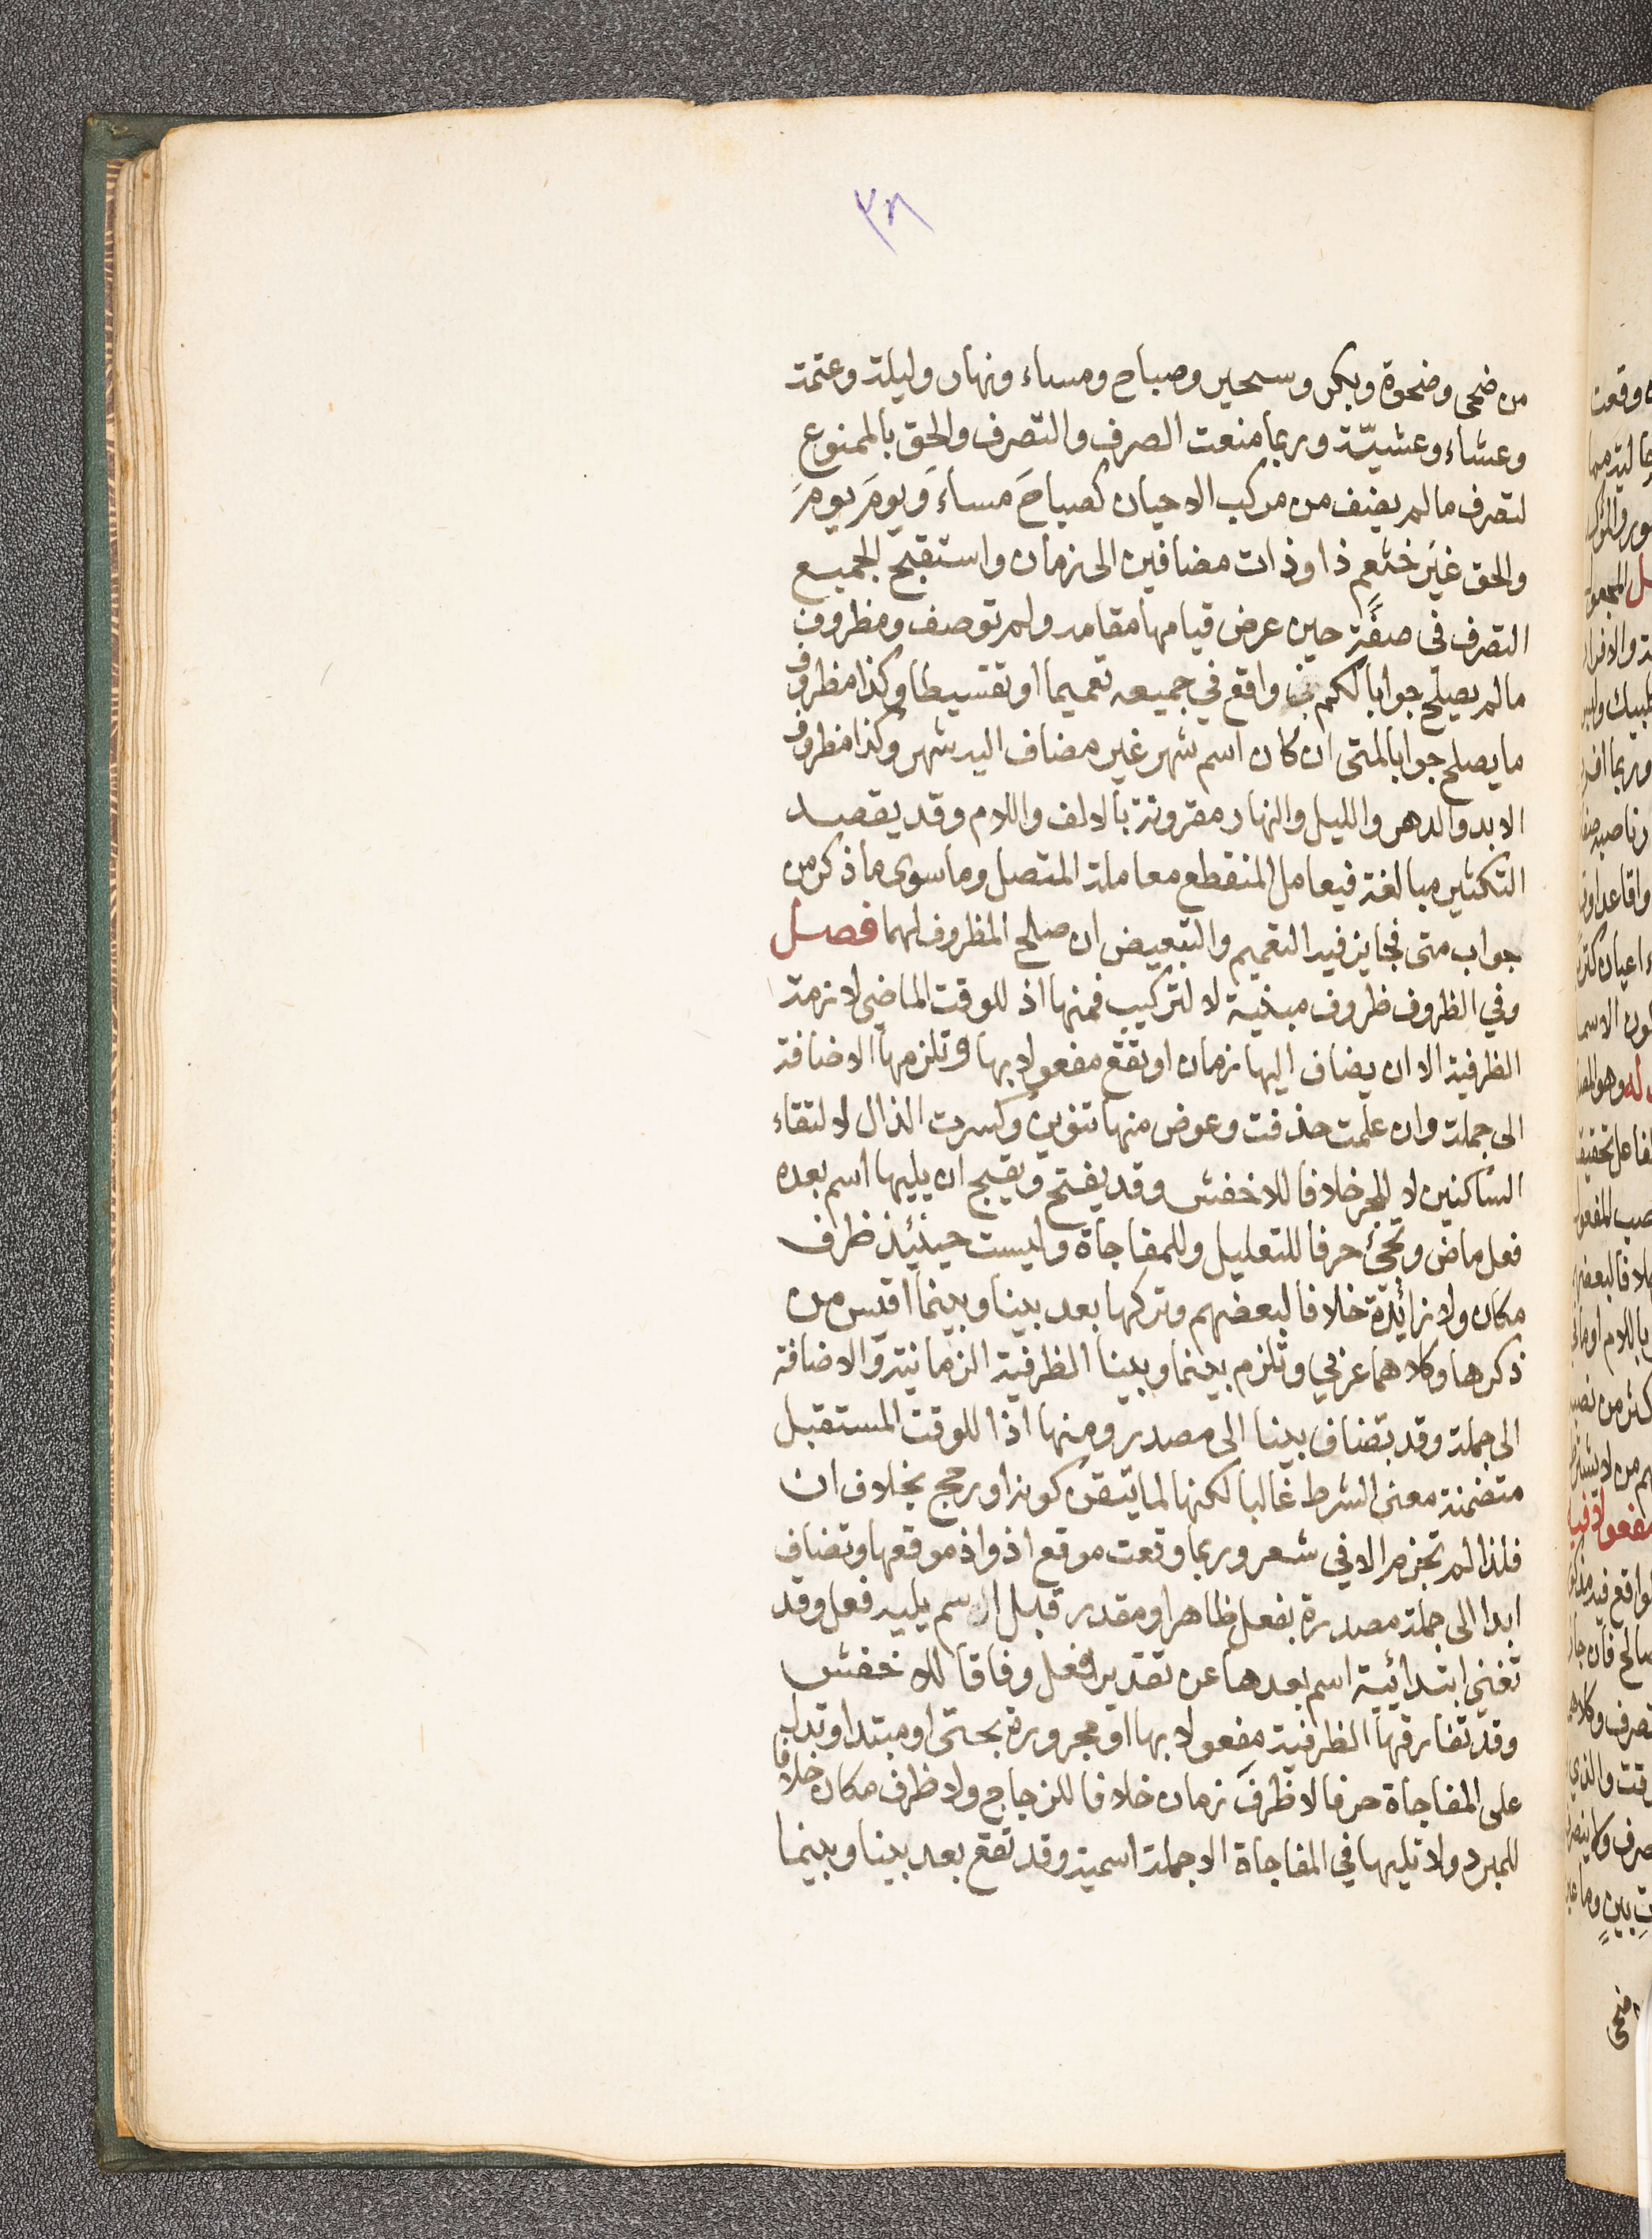 ٣٨
من ضحى وضحوة وبكر وسحير وصباح ومساء ونهار وليلة وعتمة
وعشاء وعشيّة وربما منعت الصرف والتصرف والحق بالممنوع
لتصرف ما لم يضف من مركب الاحيان كصباحَ مساءَ ويومَ يومَ
والحق غيَر خثعم ذا وذات مضافين الى زمان واستقبح الجميع
التصرف في صفةٍ حين عرض قيامها مقامه ولم توصف ومظروف
ما لم يصلح جوابا لكم واقع في جميعه تعميما او تقسيطا وكذا مظروف
ما يصلح جوابا لمتى ان كان اسم شهر غير مضاف اليه شهر وكذا مظروف
الابد والدهر والليل والنهار مقرونة بالالف واللام وقد يقصد
التكثير مبالغة فيعامل المنقطع معاملة المتصل وما سوى ما ذكر من
جواب متى فجايز فيه التعميم والتبعيض ان صلح المظروف لهما فصل
وفي الظروف ظروف مبنية لا لتركيب فمنها اذ للوقت الماضي لازمة
الظرفية الا ان يضاف اليها زمان او تقع مفعولا بها وتلزمها الاضافة
الى جملة وان علمت حذفت وعوض منها تنوين وكسرت الذال لالتقاء
الساكنين لا للجر خلافا للاخفش وقد يفتح ويقبح ان يليها اسم بعده
فعل ماض وتجئ حرفا للتعليل وللمفاجاة وليست حينئذ ظرف
مكان ولا زائدة خلافا لبعضهم وتركها بعد بينا وبينما اقيس من
ذكرها وكلاهما عربي وتلزم بينما وبينا الظرفية الزمانية والاضافة
الى جملة وقد تضاف بينا الى مصدر ومنها اذا للوقت المستقبل
متضمنة معنى الشرط غالبا لكنها لما تيقن كونه او رجح بخلاف ان
فلذا لم تجزم الا في شعر وربما وقعت موقع اذ واذ موقعها وتضاف
ابدا الى جملة مصدرة بفعل ظاهر او مقدر قبل اسم يليه فعل وقد
تغني ابتدائية اسم بعدها عن تقدير فعل وفاقا للاخفش
وقد تفارقها الظرفية مفعولا بها او مجرورة بحتى او مبتدا وتدل
على المفاجاة حرفا لا ظرفَ زمان خلافا للزجاج ولا ظرف مكان خلافا
للمبرد ولا تليها في المفاجاة الا جملة اسمية وقد تقع بعد بينا وبينما